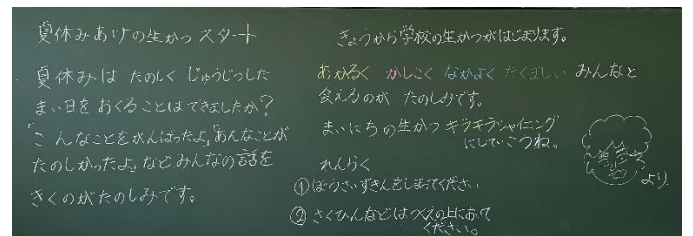 夏休みあけの生かつスタート
夏休みは たのしく じゅうじつした
まい日を おくることはできましたか?
「こんなことをがんばったよ」「あんなことが
たのしかったよ」など、みんなの話を
きくのがたのしみです。
きょうから学校の生かつがはじまります。
あかるく かしこく なかよく たくましい みんなと
会えるのが たのしみです。
まいにちの生かつ キラキラシャイニング
にしていこうね。
れんらく
①ぼうさいずきんをしまってください
②さくひんなどはつくえの上において
ください。
より